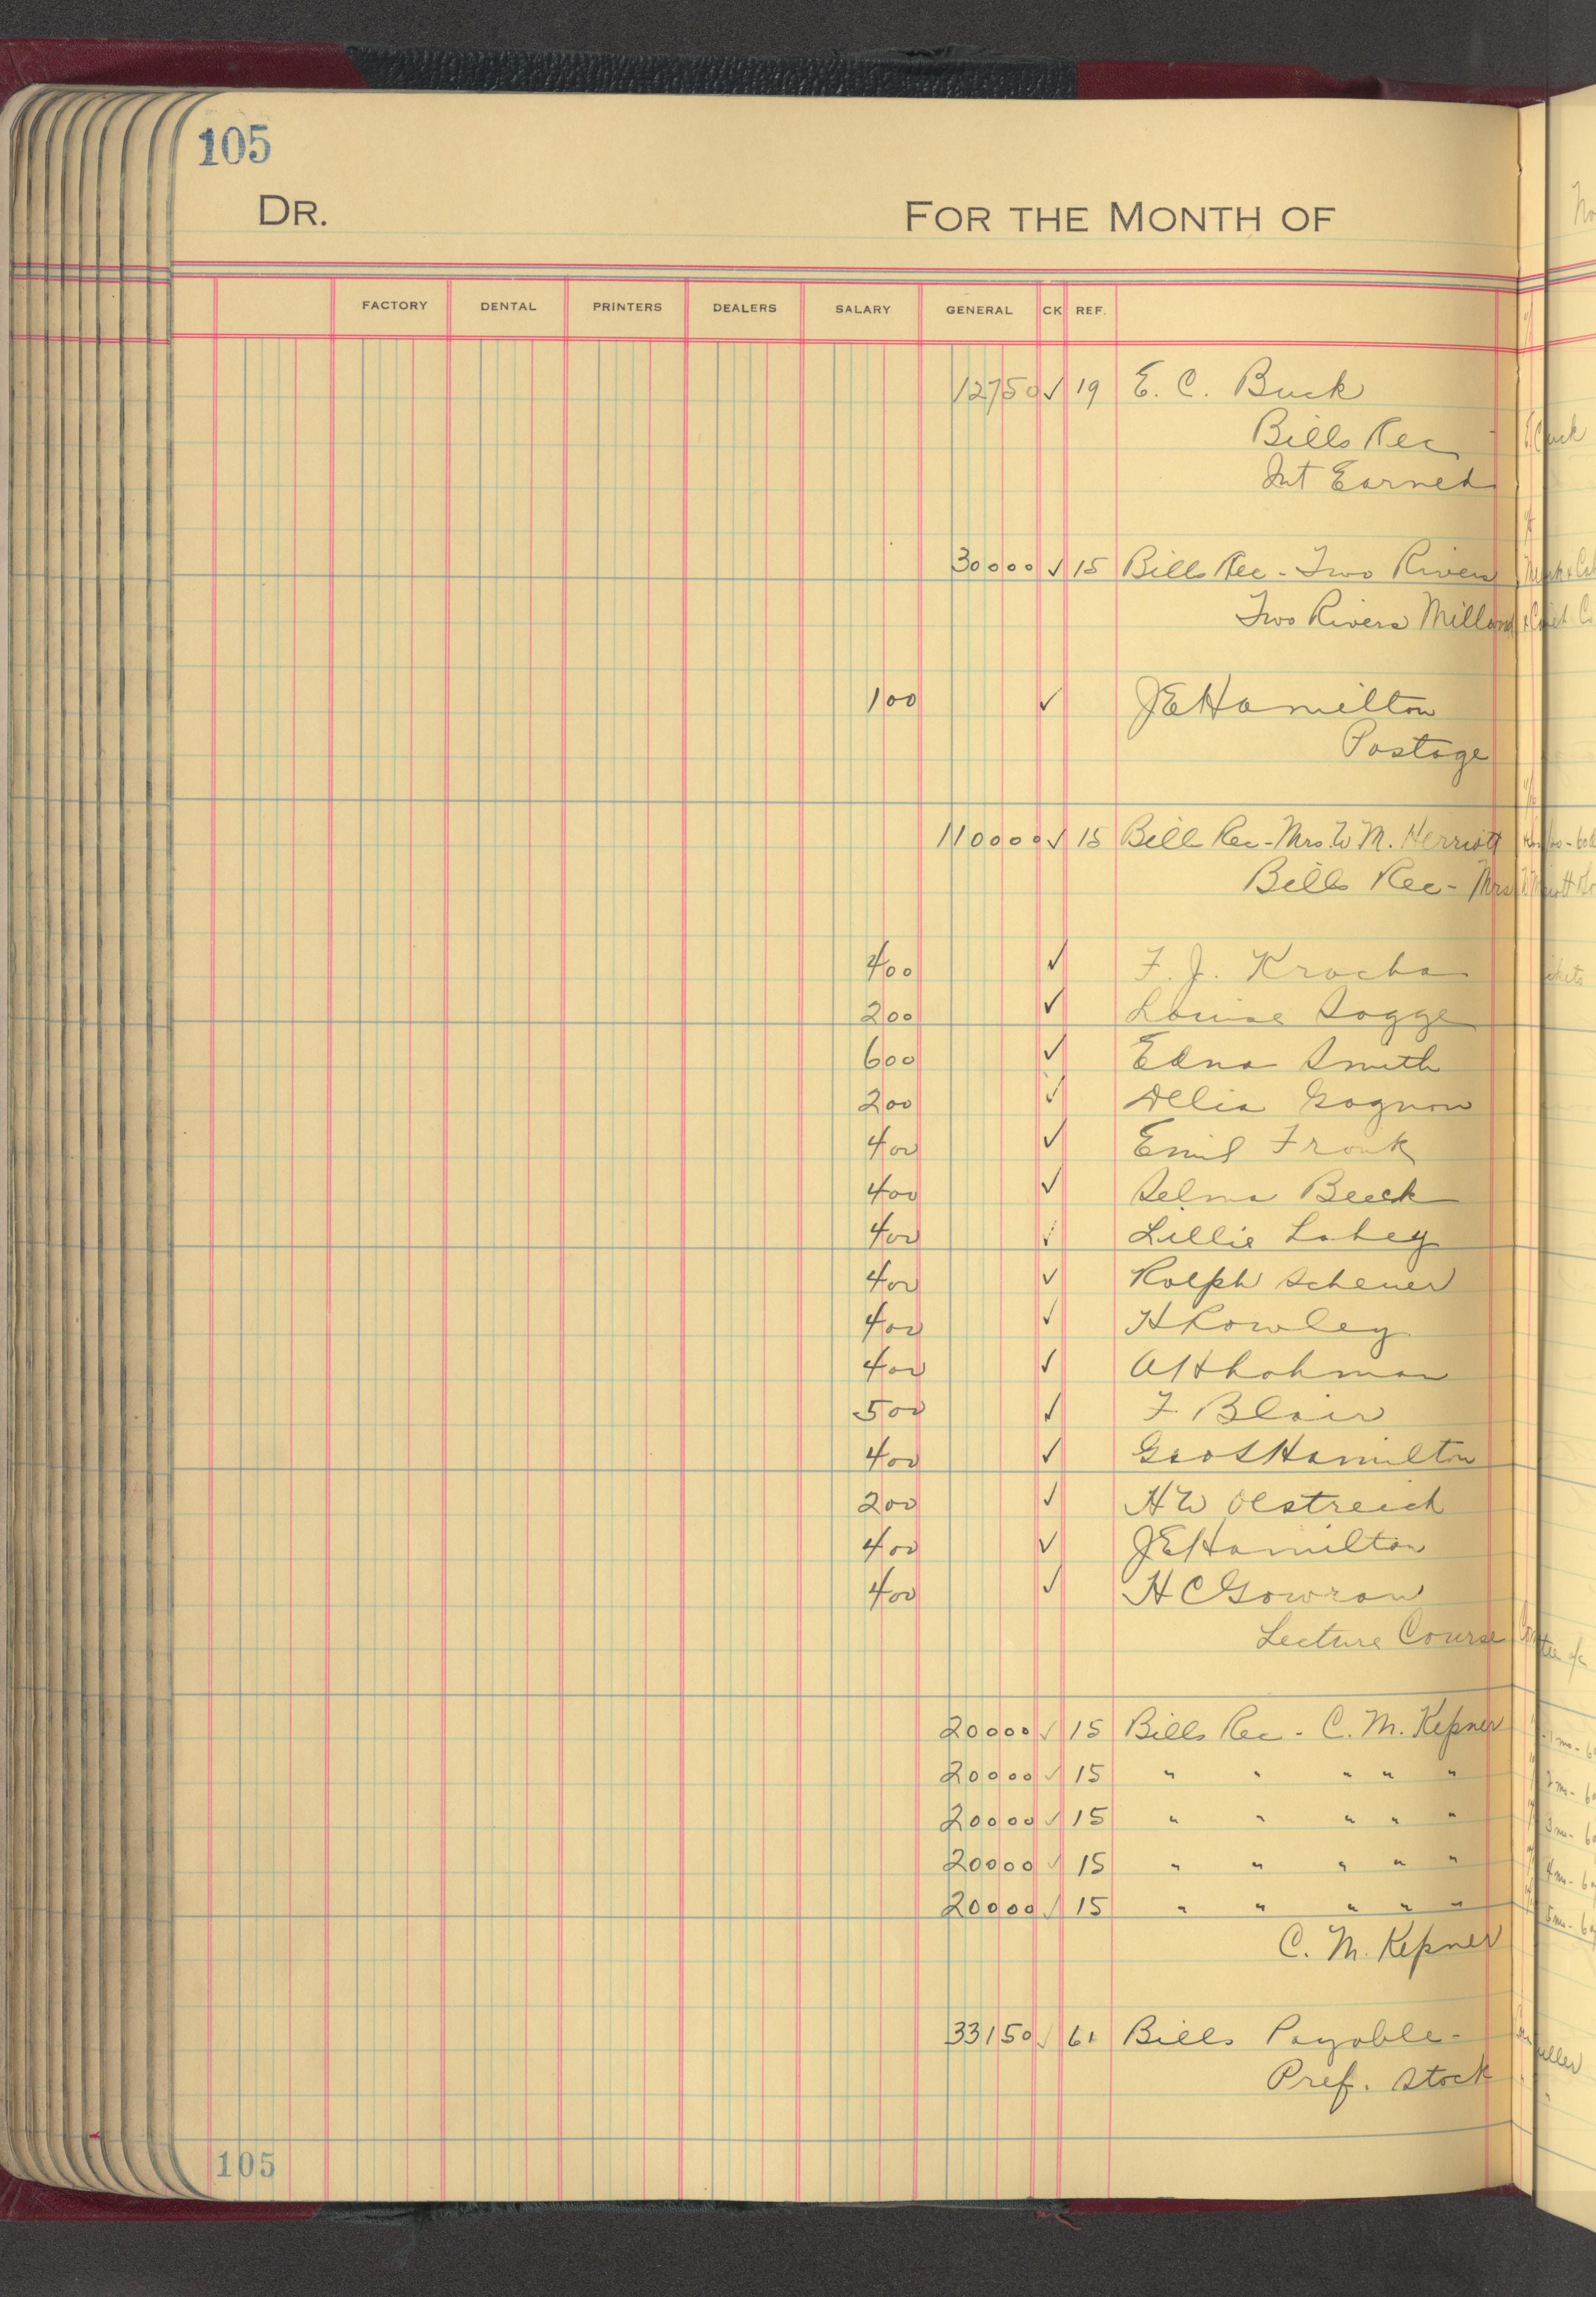 105
DR. FOR THE MONTH OF
FACTORY DENTAL PRINTERS DEALERS SALARY GENERAL CK REF.
12750 ✓ 19 E. C. Buck
Bills Rec
Int Earned
30000 ✓ 15 Bills Rec - Two Rivers
Two Rivers Millwork
100 ✓ J E Hamilton
Postage
110000 ✓ 15 Bill Rec - Mrs. W M. Herriott
Bills Rec - Mrs
400 ✓ F. J. Krocha
200 ✓ Louise Sogge
600 ✓ Edna Smith
200 ✓ Delia Gagnon
400 ✓ Emil Frank
400 ✓ Selma Beeck
400 ✓ Lillie Lahey
400 ✓ Rolph Scheuer
400 ✓ H Rowley
400 ✓ A H Lohman
500 ✓ F Blair
400 ✓ Geo S Hamilton
200 ✓ H W Oestreich
400 ✓ J E Hamilton
400 ✓ H C Gowran
Lecture Course
20000 ✓ 15 Bills Rec - C. M. Kepner
20000 ✓ 15 " " " " "
20000 ✓ 15 " " " " "
20000 ✓ 15 " " " " "
20000 ✓ 15 " " " " "
C. M. Kepner
33150 ✓ 61 Bills Payable -
Pref. Stock
105